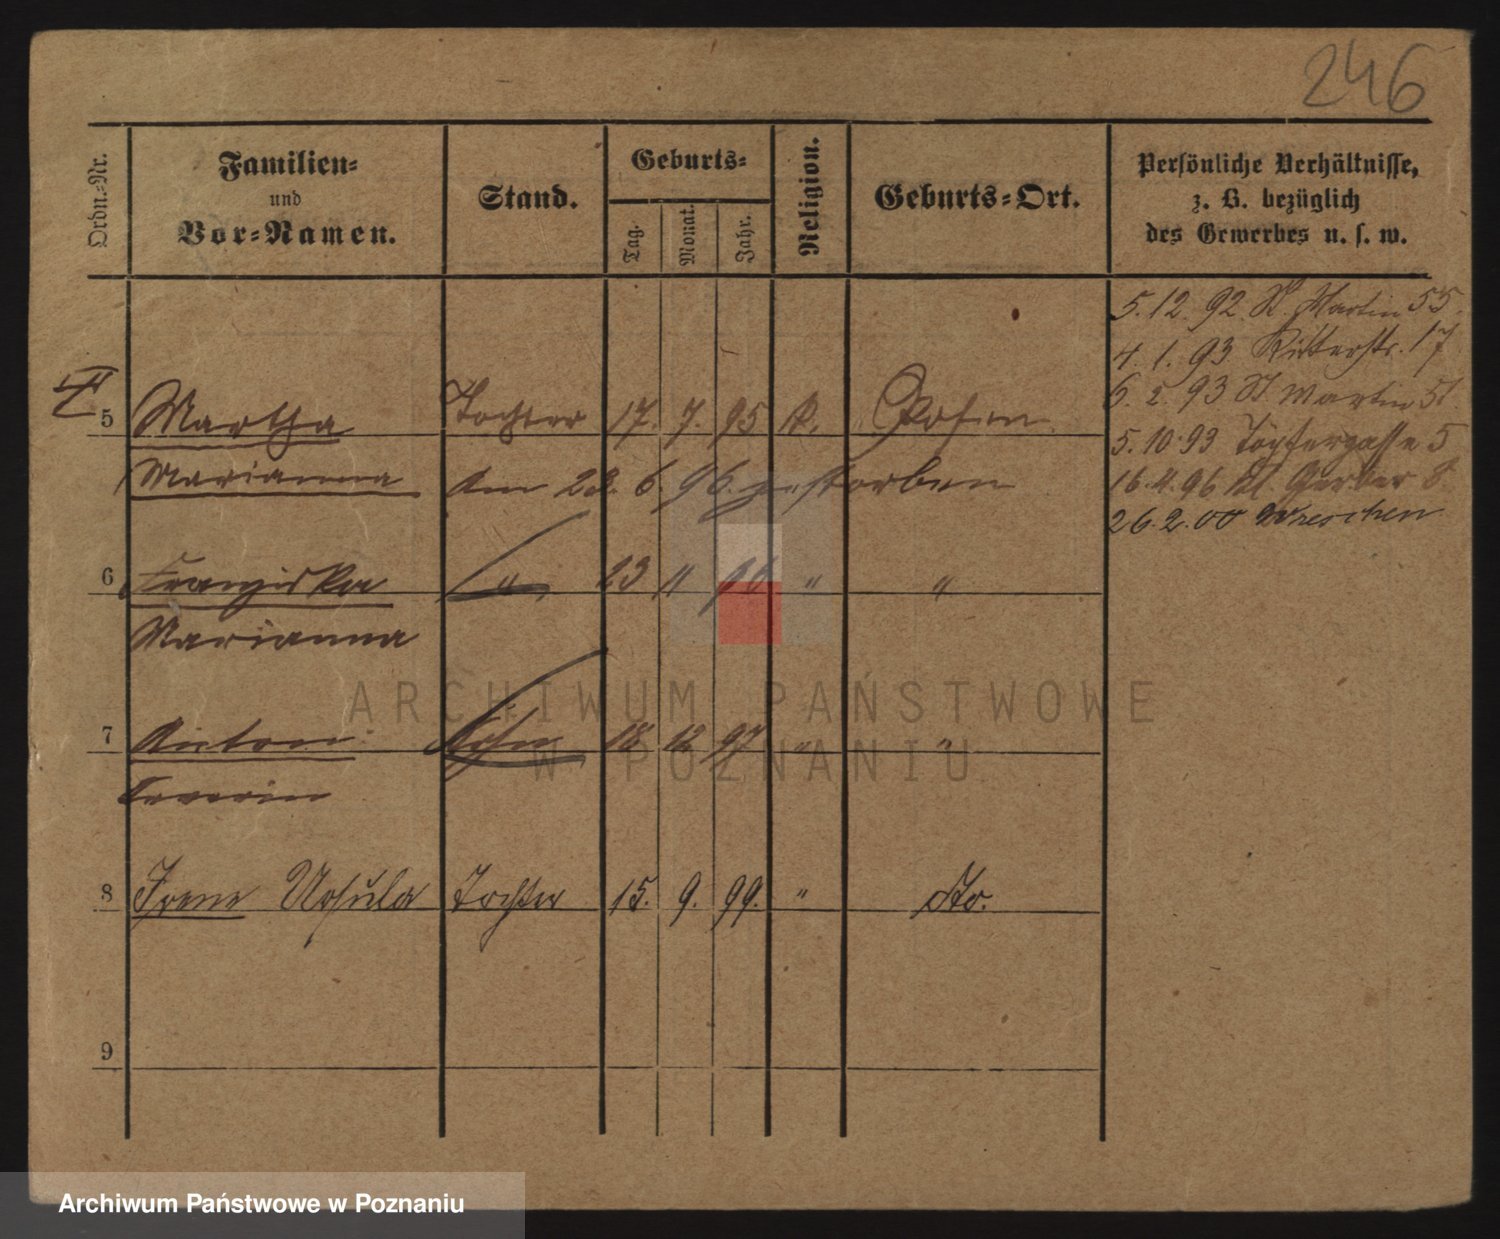 246
Ordn.-Nr.
Familien-
und
Vor-Namen.
Stand.
Geburts-
Tag.
Monat.
Jahr.
Religion.
Geburts-Ort.
Persönliche Verhältnisse,
z. B. bezüglich
des Gewerbes u. s. w.
5.12.92 St. Martin 55.
4.1.93 Ritterstr. 17
6.2.93 St Martin 51.
5.10.93 Töpfergasse 5
16.4.96 Kl. Gerber 8.
26.2.00 Wreschen
5 Martha Tochter 17. 7. 95 K. Posen
Marianna Am 28. 6. 96. gestorben
6 Franziska " 23 11 " "
Marianna
7 Anton Sohn 18 12 97 " "
Severin
8 Irene Ursula Tochter 15. 9. 99. " Dto.
9
ARCHIWUM PAŃSTWOWE
W POZNANIU
Archiwum Państwowe w Poznaniu